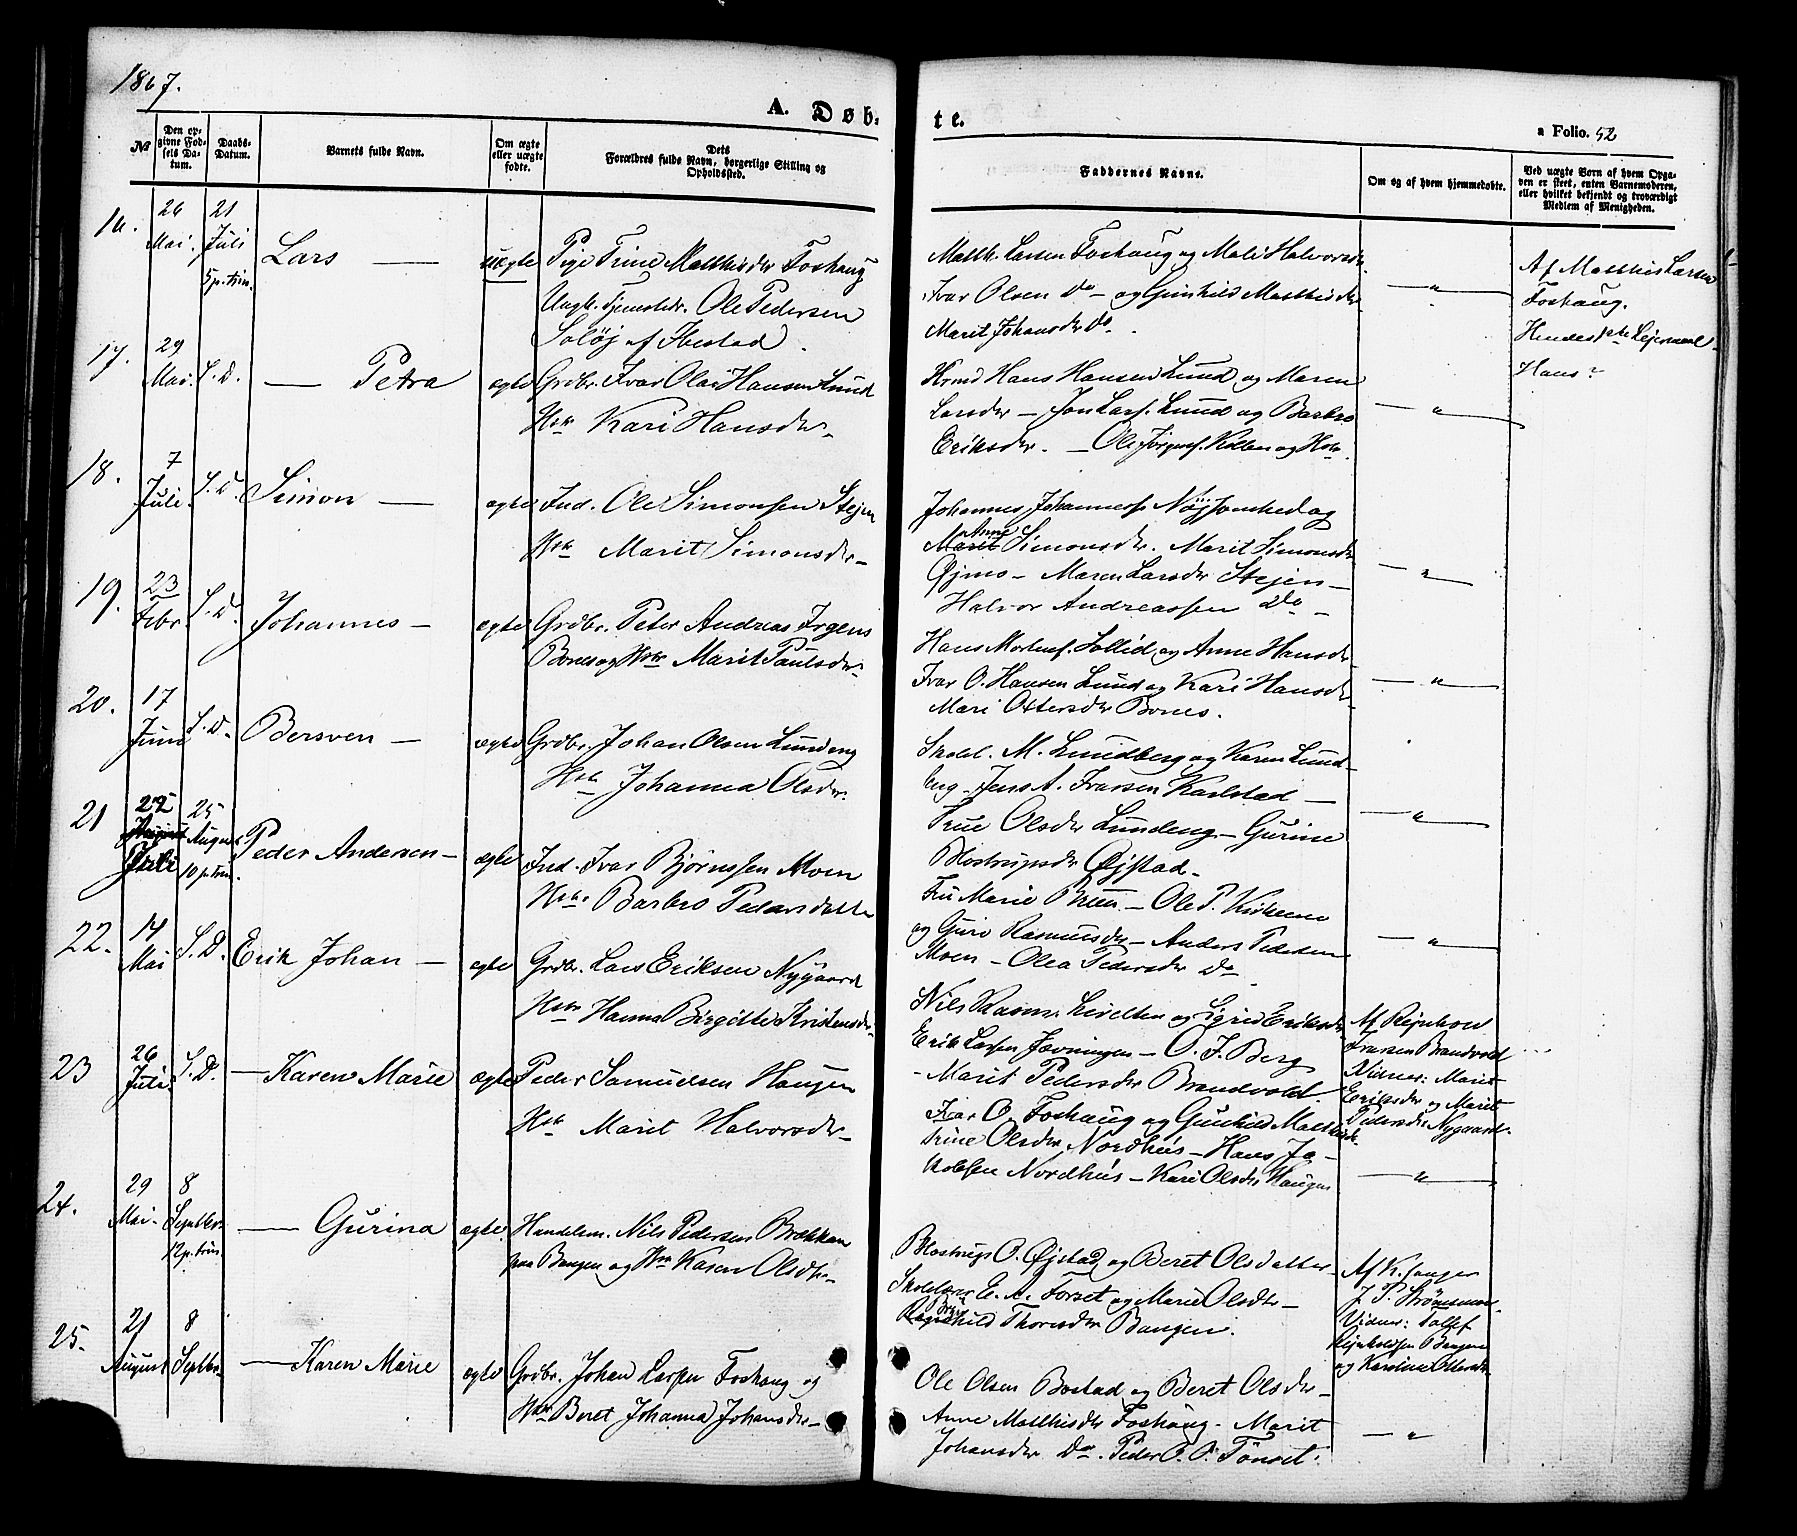 1867.
A. Døb-
te.
a Folio. 52
No
Den op-
givne Fød-
sels Da-
tum.
Daabs-
Datum.
Barnets fulde Navn.
Om ægte
eller uægte
fødte.
Dets
Forældres fulde Navn, borgerlige Stilling og
Opholdssted.
Faddernes Navne.
Om og af hvem hjemmedøbte.
Ved uægte Børn af hvem Opga-
ven er skeet, enten Barnemoderen,
eller hvilket bekjendt og troværdigt
Medlem af Menigheden.
16. 26 Mai. 21 Juli 5 p. trin.
Lars —
uægte
Pige Trine Matthisdr Foshaug
Ungk. Tjenestekr. Ole Pedersen
Soløj af Ibestad.
Matth. Larsen Foshaug og Mali Halvorsdr
Ivar Olsen Do — og Gunhild Matthisdr
Marit Johansdr Do.
— " —
Af Matthis Larsen
Foshaug.
Hendes 1ste Lejermaal
Hans?
17. 29 Mai. S. D.
— Petra
ægte
Grdbr. Ivar Olai Hansen Lund
Hstr Kari Hansdr
Hrmd Hans Hansen Lund og Maren
Larsdr — Jon Larss. Lund og Barbro
Eriksdr. — Ole Jørgens. Kolben og Hstr.
— " —
18. 7 Juli. S. D.
Simon —
ægte
Ind. Ole Simonsen Stejen
Hstr Marit Simonsdr
Johannes Johanness. Nøjsomhed og
Anne
Marit Simonsdr. Marit Simonsdr
Øjmo — Maren Larsdr Stejen —
Halvor Andreassen Do —
— " —
19. 23 Febr S. D.
Johannes —
ægte
Grdbr. Peter Andreas Irgens
Bones og Hstr Marit Paulsdr
Hans Mortens. Sollid og Anne Hansdr
Ivar O. Hansen Lund og Kari Hansdr
Mari Ottersdr Bones.
— " —
20. 17 Juni S. D.
Bersven —
ægte
Grdbr. Johan Olsen Lundeng
Hstr Johanna Olsdr.
Skolel. M. Lundberg og Karen Lund-
eng — Jens A. Ivarsen Karlstad —
Trine Olsdr Lundeng — Gurine
Blostrupsdr Øjstad —
— " —
21 22 August Juli 25 August 10 p. trin.
Peder Andersen —
ægte
Ind. Ivar Bjørnssen Moen
Hstr Barbro Pedersdatter
Fru Marie Bruun — Ole P. Kirkemo
og Guro Rasmusdr — Anders Pedersen
Moen — Olea Pedersdr Do
— " —
22. 14 Mai S. D.
Erik Johan —
ægte
Grdbr. Lars Eriksen Nygaard
Hstr Hanna Birgitte Kristensdr
Nils Rasm. Lividten og Sigrid Eriksdr
Erik Larsen Jævningen — O. J. Berg
— Marit Pedersdr Brandvold.
Af Rejnhold
Ivarsen Brandvold
Vidner: Marit
Eriksdr og Marit
Pedersdr Nygaard.
23 26 Juli. S. D.
— Karen Marie
ægte
Peder Samuelsen Haugen
Hstr Marit Halvorsdr
Ivar O. Foshaug og Gunhild Matthisdr
Trine Olsdr Nordhus — Hans Ja-
kobsen Nordhus — Kari Olsdr Haugen
— " —
24. 29 Mai. 8 Septbr. 12 p. trin.
— Gurina
ægte.
Handelsm. Nils Pedersen Brækkan
paa Bangen og Hstr Karen Olsdtr
Blostrup O. Øjstad og Beret Olsdatter
Skolelærer E. A. Forset og Marie Olsdtr —
Ragnhild Thoresdr Bangen.
Af K.sanger
J. P. Strømsmo.
Vidner: Tollef
Rejnholdsen Bangen
og Karoline Ottersdr
25. 21 August 8 Septbr.
— Karen Marie
ægte
Grdbr. Johan Larsen Foshaug og
Hstr Beret Johanna Johansdr
Ole Olsen Bostad og Beret Olsdr —
Anne Matthisdtr Foshaug. Marit
Johansdr Do. Peder O. O. Tønset.
— " —